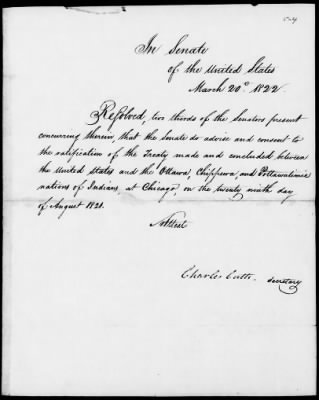 In Senate
of the United States
March 20th 1822.
Resolved, two thirds of the Senators present
concurring therein that the Senate do advise and consent to
the ratification of the Treaty made and concluded between
the United States and the Ottawa, Chippewa, and Pottawatimia
nations of Indians at Chicago, on the twenty ninth day
of August 1821.
Attest
Charles Cutts. Secretary